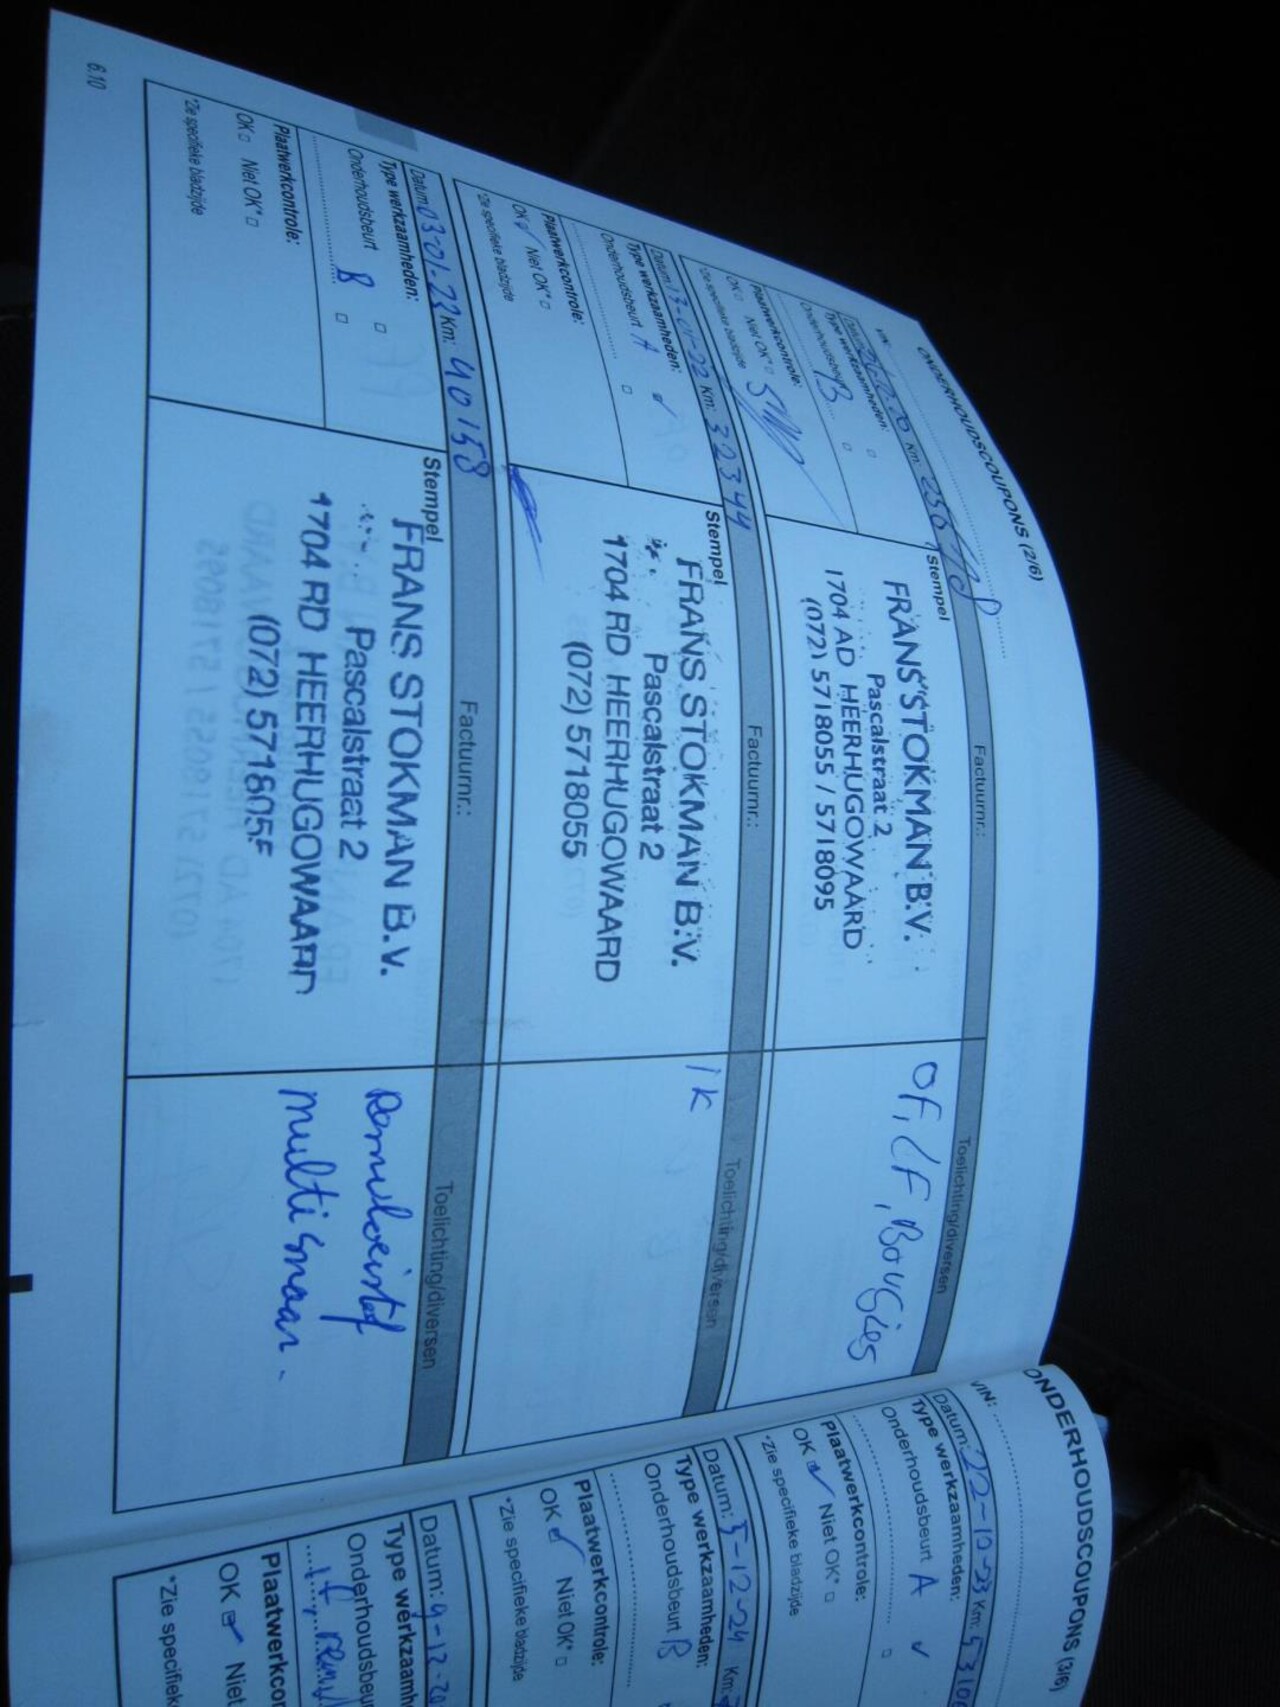 ONDERHOUDSCOUPONS (2/6)
VIN:
Datum: Km: Factuurnr.: Toelichting/diversen
Type werkzaamheden:
Onderhoudsbeurt B
Plaatwerkcontrole:
OK Niet OK*
*Zie specifieke bladzijde
Stempel
FRANS STOKMAN B.V.
Pascalstraat 2
1704 AD HEERHUGOWAARD
(072) 5718055 / 5718095
OF, LF, Bougies
Datum: Km: 32344 Factuurnr.: Toelichting/diversen
Type werkzaamheden:
Onderhoudsbeurt A
Plaatwerkcontrole:
OK Niet OK*
*Zie specifieke bladzijde
Stempel
FRANS STOKMAN B.V.
Pascalstraat 2
1704 RD HEERHUGOWAARD
(072) 5718055
1K
Datum: 03-01-22 Km: 40158 Factuurnr.: Toelichting/diversen
Type werkzaamheden:
Onderhoudsbeurt B
Plaatwerkcontrole:
OK Niet OK*
*Zie specifieke bladzijde
Stempel
FRANS STOKMAN B.V.
Pascalstraat 2
1704 RD HEERHUGOWAARD
(072) 5718055
Remvloeistof
multisnaar.
6.10
ONDERHOUDSCOUPONS (3/6)
VIN:
Datum: 22-10-23 Km:
Type werkzaamheden:
Onderhoudsbeurt A
Plaatwerkcontrole:
OK Niet OK*
*Zie specifieke bladzijde
Datum: 5-12-24 Km:
Type werkzaamheden:
Onderhoudsbeurt B
Plaatwerkcontrole:
OK Niet OK*
*Zie specifieke bladzijde
Datum: 9-12-20
Type werkzaamh
Onderhoudsbeu
Plaatwerkcon
OK Niet
*Zie specifiek